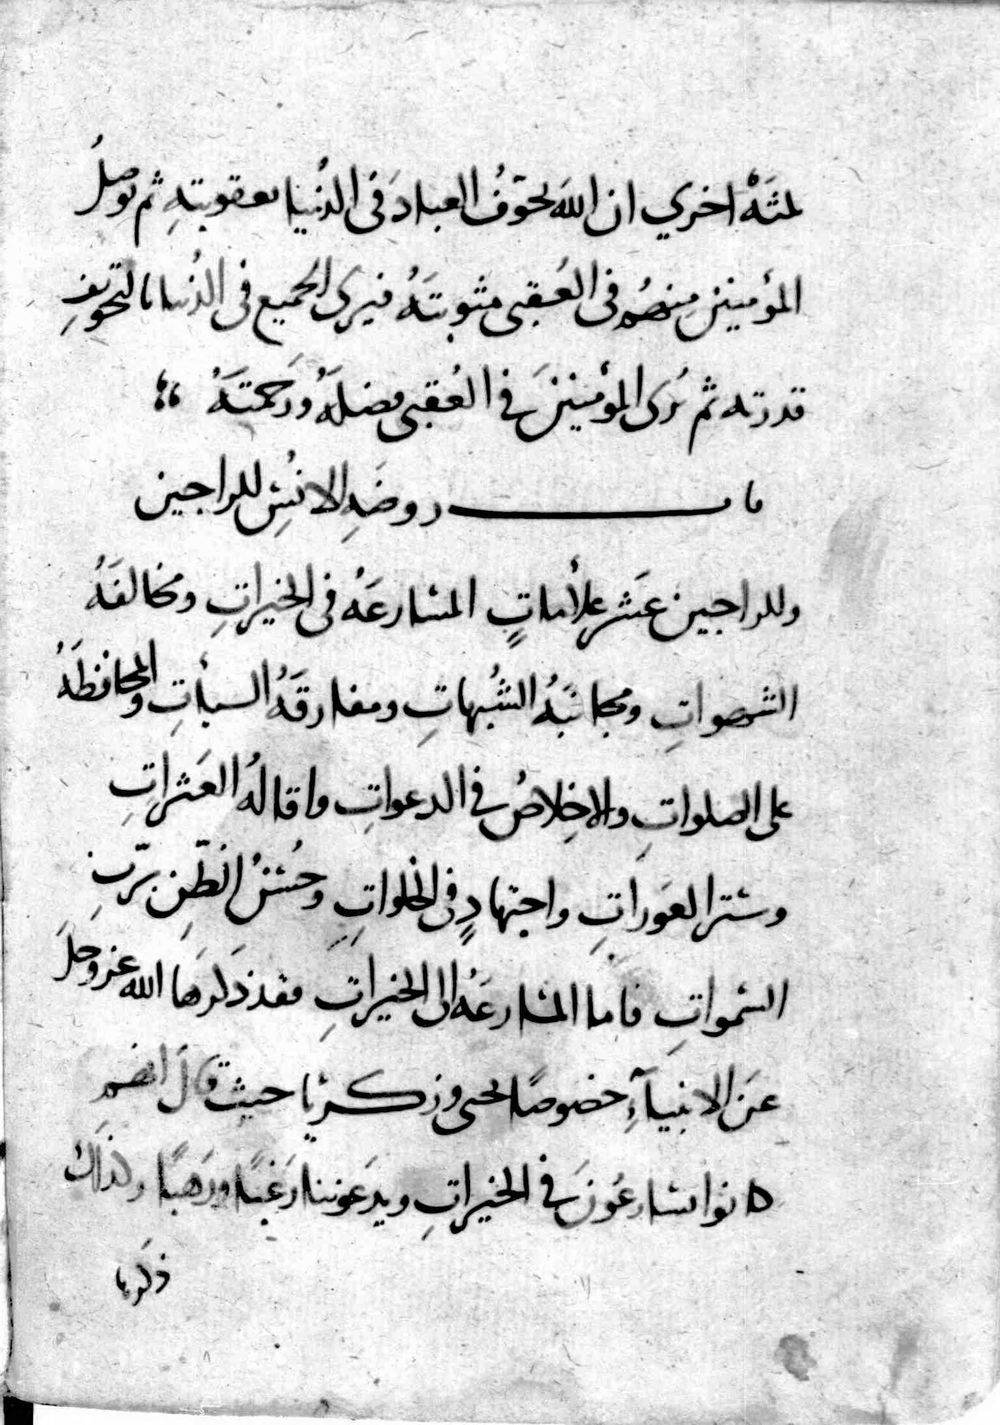 لمثه اخري ان الله يخوف العباد في الدنيا بعقوبته ثم يوصل
المؤمنين منهم في العقبى مثوبته فيرى الجميع في الدنيا بالتخويف
قدرته ثم يرى المؤمنين في العقبى فضله ورحمته
باب روضه الانس للراجين
وللراجين عشر علامات المسارعه في الخيرات ومخالفه
الشهوات ومجانبه الشبهات ومفارقه السيأت والمحافظه
على الصلوات والاخلاص في الدعوات واقاله العثرات
وستر العورات واجتهاد في الخلوات وحسن الظن برب
السموات فاما المسارعه الى الخيرات فقد ذكرها الله عز وجل
عن الانبيآء خصوصا يحيى وزكريا حيث قال انهم
كانوا يسارعون في الخيرات ويدعوننا رغبا ورهبا وكذلك
ذكرها